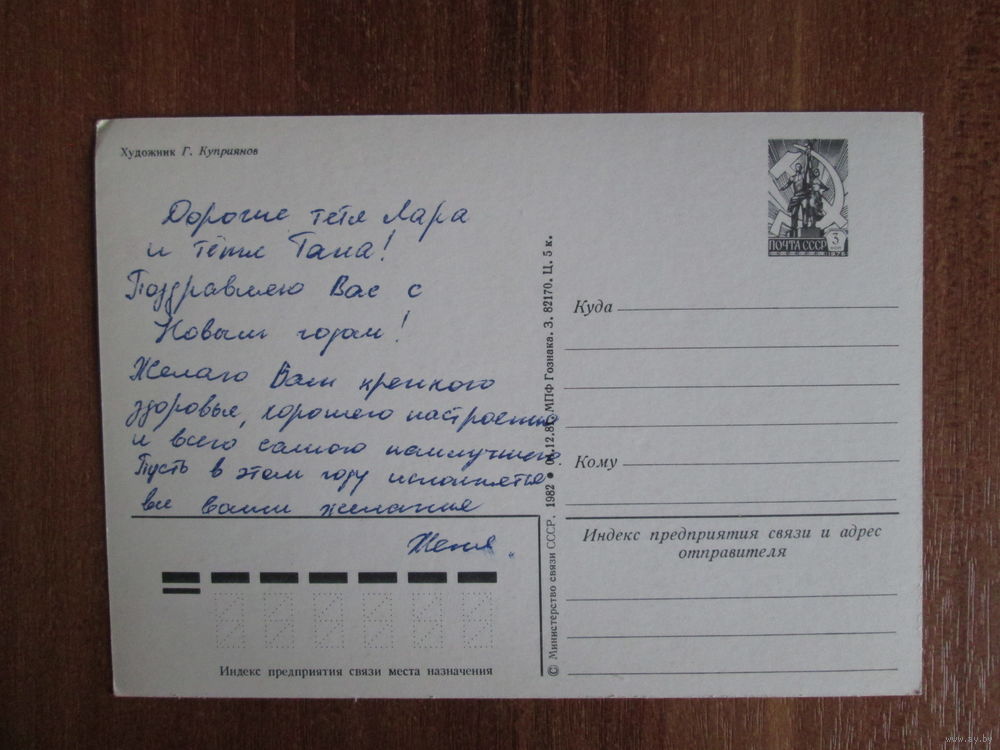 Художник Г. Куприянов
Дорогие тётя Лара
и тётя Тана!
Поздравляю Вас с
Новым годом!
Желаю Вам крепкого
здоровья, хорошего настроения
и всего самого наилучшего.
Пусть в этом году исполнятся
все ваши желания
Женя
Индекс предприятия связи места назначения
© Министерство связи СССР. 1982 ● 12.81. МПФ Гознака. З. 82170. Ц. 5 к.
ПОЧТА СССР
3
КОП
1976
Куда
Кому
Индекс предприятия связи и адрес
отправителя
www.ay.by